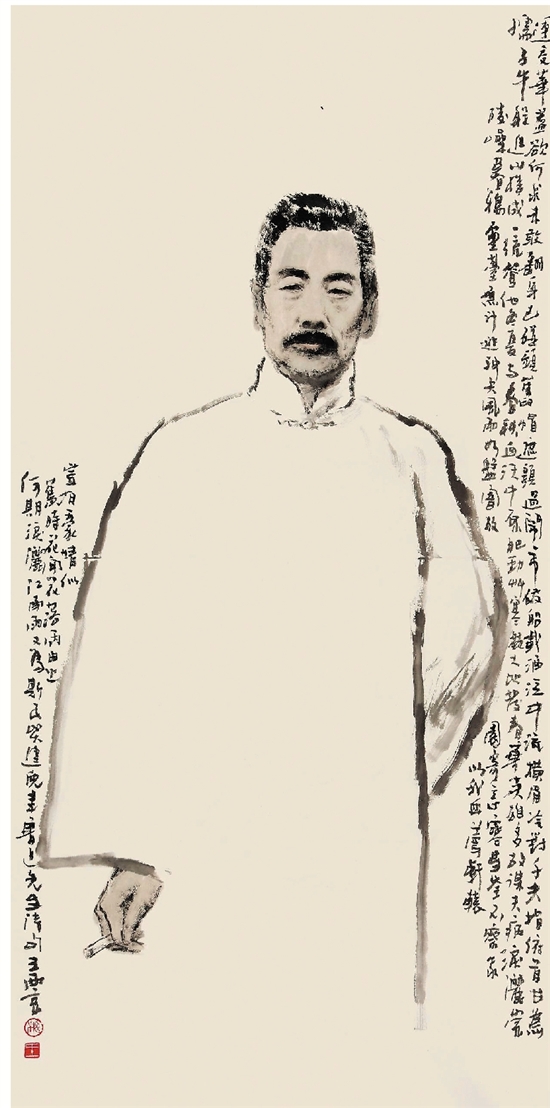 運交華蓋欲何求未敢翻身已碰頭舊帽遮顏過鬧市破船載酒泛中流橫眉冷對千夫指俯首甘為
孺子牛躲進小樓成一統管他冬夏與春秋血沃中原肥勁草寒凝大地發春華英雄多故謀夫病淚灑崇
陵噪暮鴉靈臺無計逃神矢風雨如磐闇故
園寄意寒星荃不察我
以我血薦軒轅
豈有豪情似
舊時花開花落兩由之
何期淚灑江南雨又為斯民哭健兒書魯迅先生詩句王西京